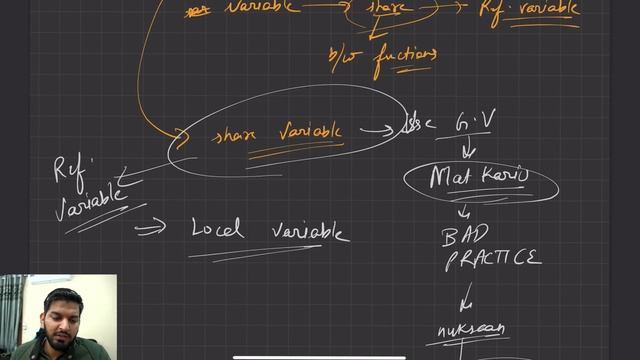 variable → share → Ref. variable
b/w fuctions
share variable → Use G.V
Mat Kario
BAD
PRACTICE
nuksaan
Ref.
variable
⇒ Local variable